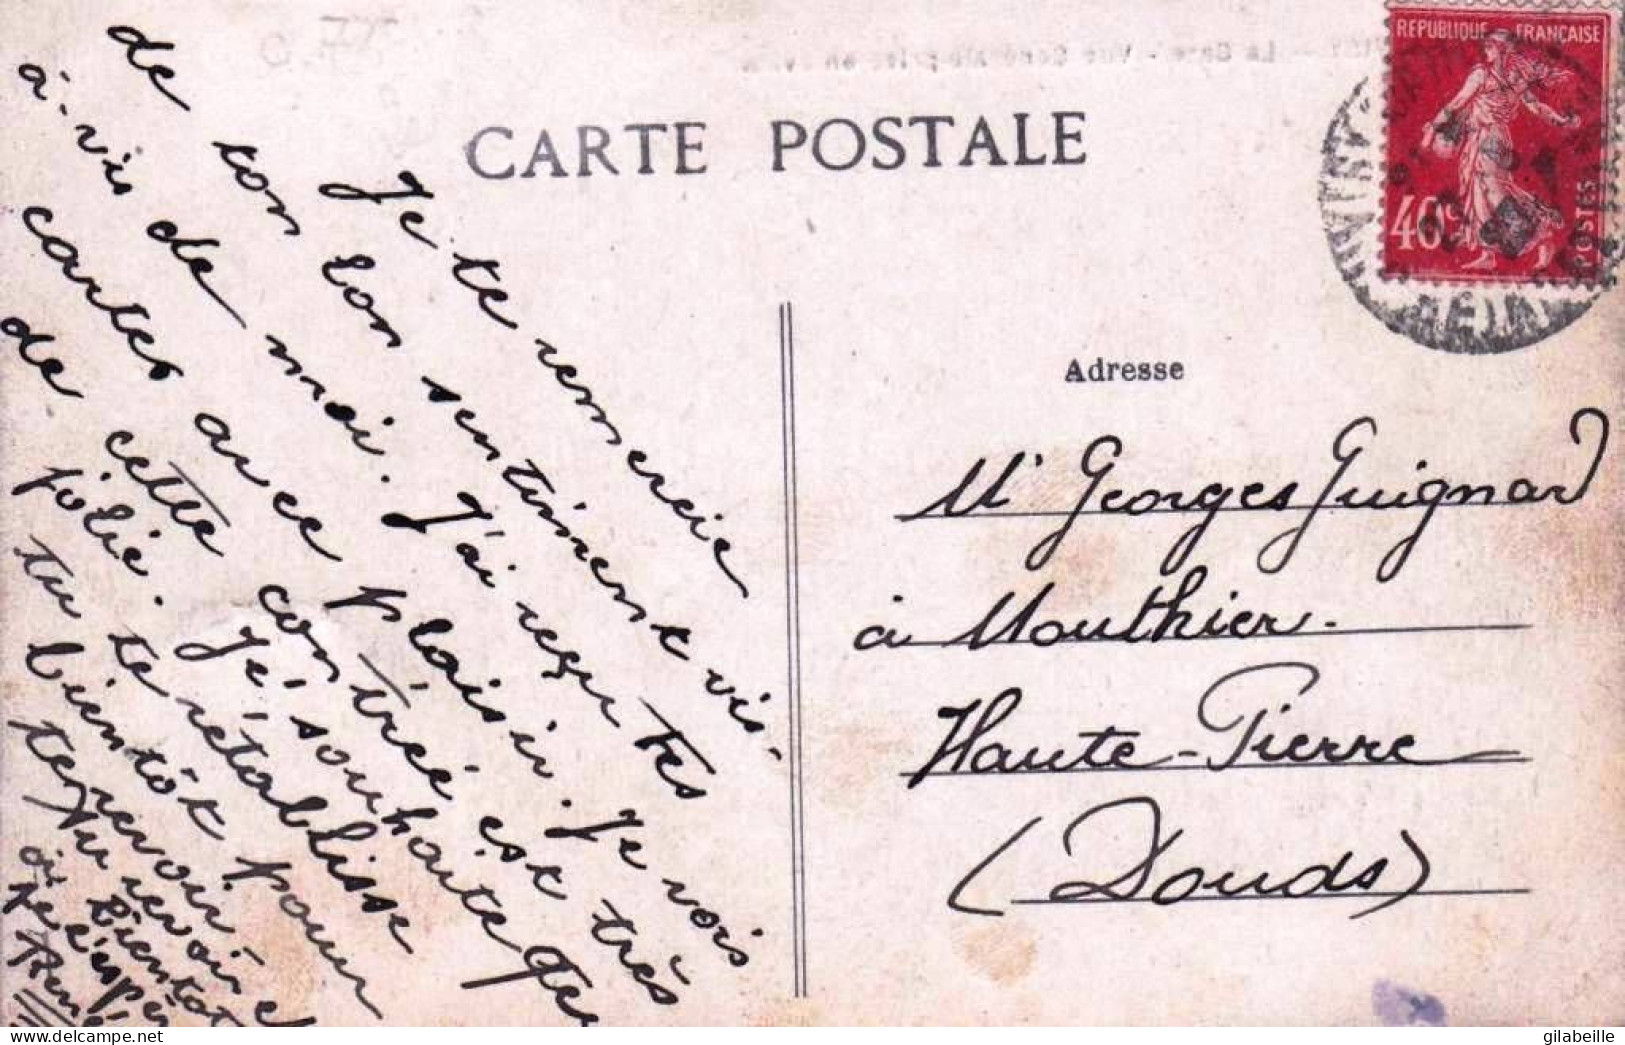 CARTE POSTALE
REPUBLIQUE FRANÇAISE
40c
POSTES
Adresse
Mr Georges Guignard
à Mouthier-
Haute-Pierre
(Doubs)
Je te remercie
de ton bon sentiment vis-
à-vis de moi. J'ai reçu tes
cartes avec plaisir. Je vois
de cette contrée est très
jolie. Je souhaite que
tu te rétablisse
bientôt pour
te revoir.
Au revoir et
à bientôt
je l'espér
René
gilabeille